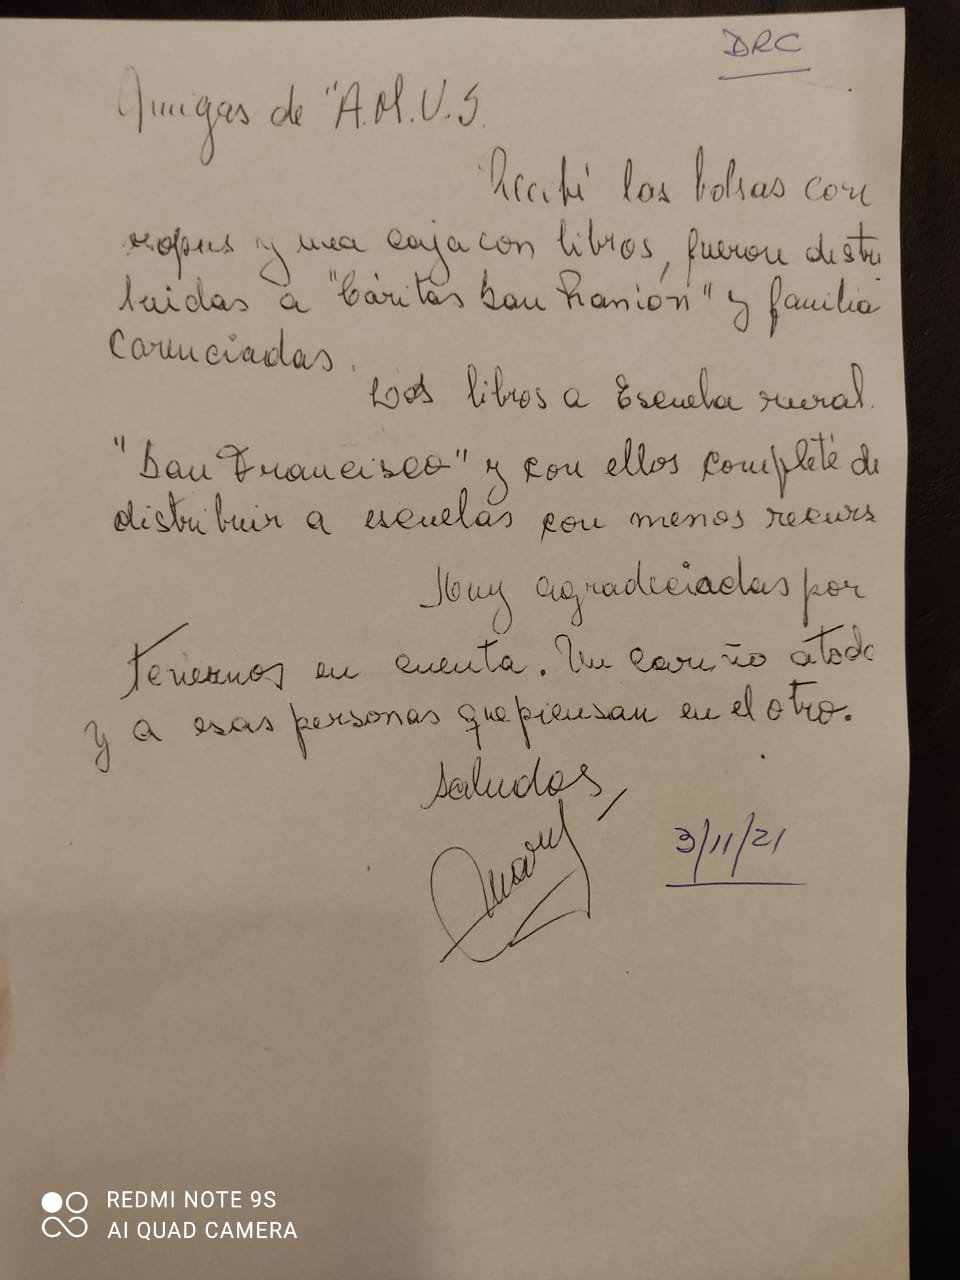 DRC
Amigas de "A.M.V.S.
Recibí las bolsas con
ropas y una caja con libros, fueron distri
buidas a "Cáritas San Ramón" y familia
carenciadas.
Los libros a Escuela rural.
"San Francisco" y con ellos completé de
distribuir a escuelas con menos recurs
Muy agradeciadas por
tenernos en cuenta. Un cariño a todo
y a esas personas que piensan en el otro.
Saludos,
3/11/21
REDMI NOTE 9S
AI QUAD CAMERA